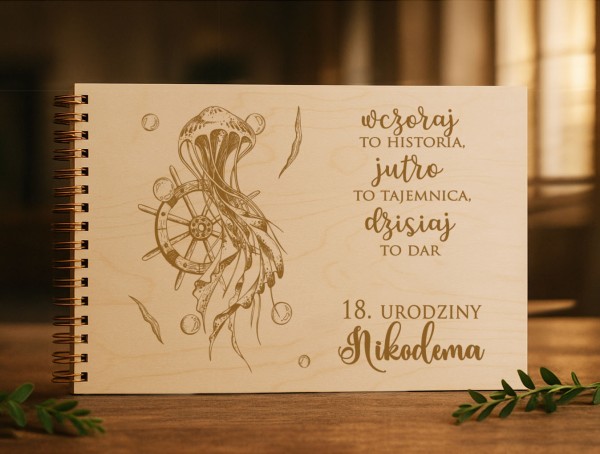 wczoraj
TO HISTORIA,
jutro
TO TAJEMNICA,
dzisiaj
TO DAR
18. URODZINY
Nikodema